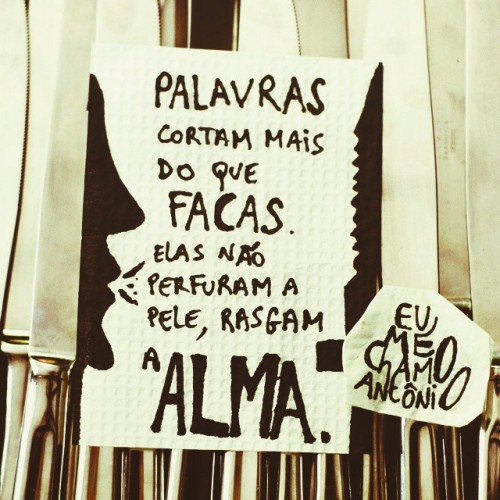 PALAVRAS
CORTAM MAIS
DO QUE
FACAS.
ELAS NÃO
PERFURAM A
PELE, RASGAM
A ALMA.
EU
ME
CHAMO
ANTÔNIO